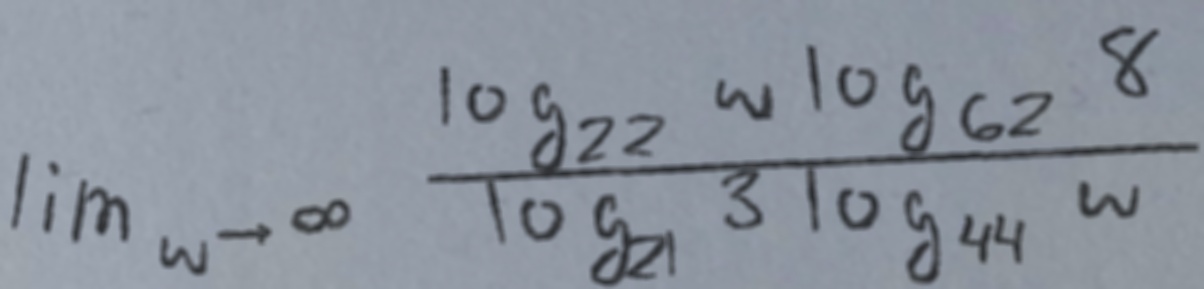 lim_{w→∞} \frac{log_{22} w log_{62} 8}{log_{21} 3 log_{44} w}